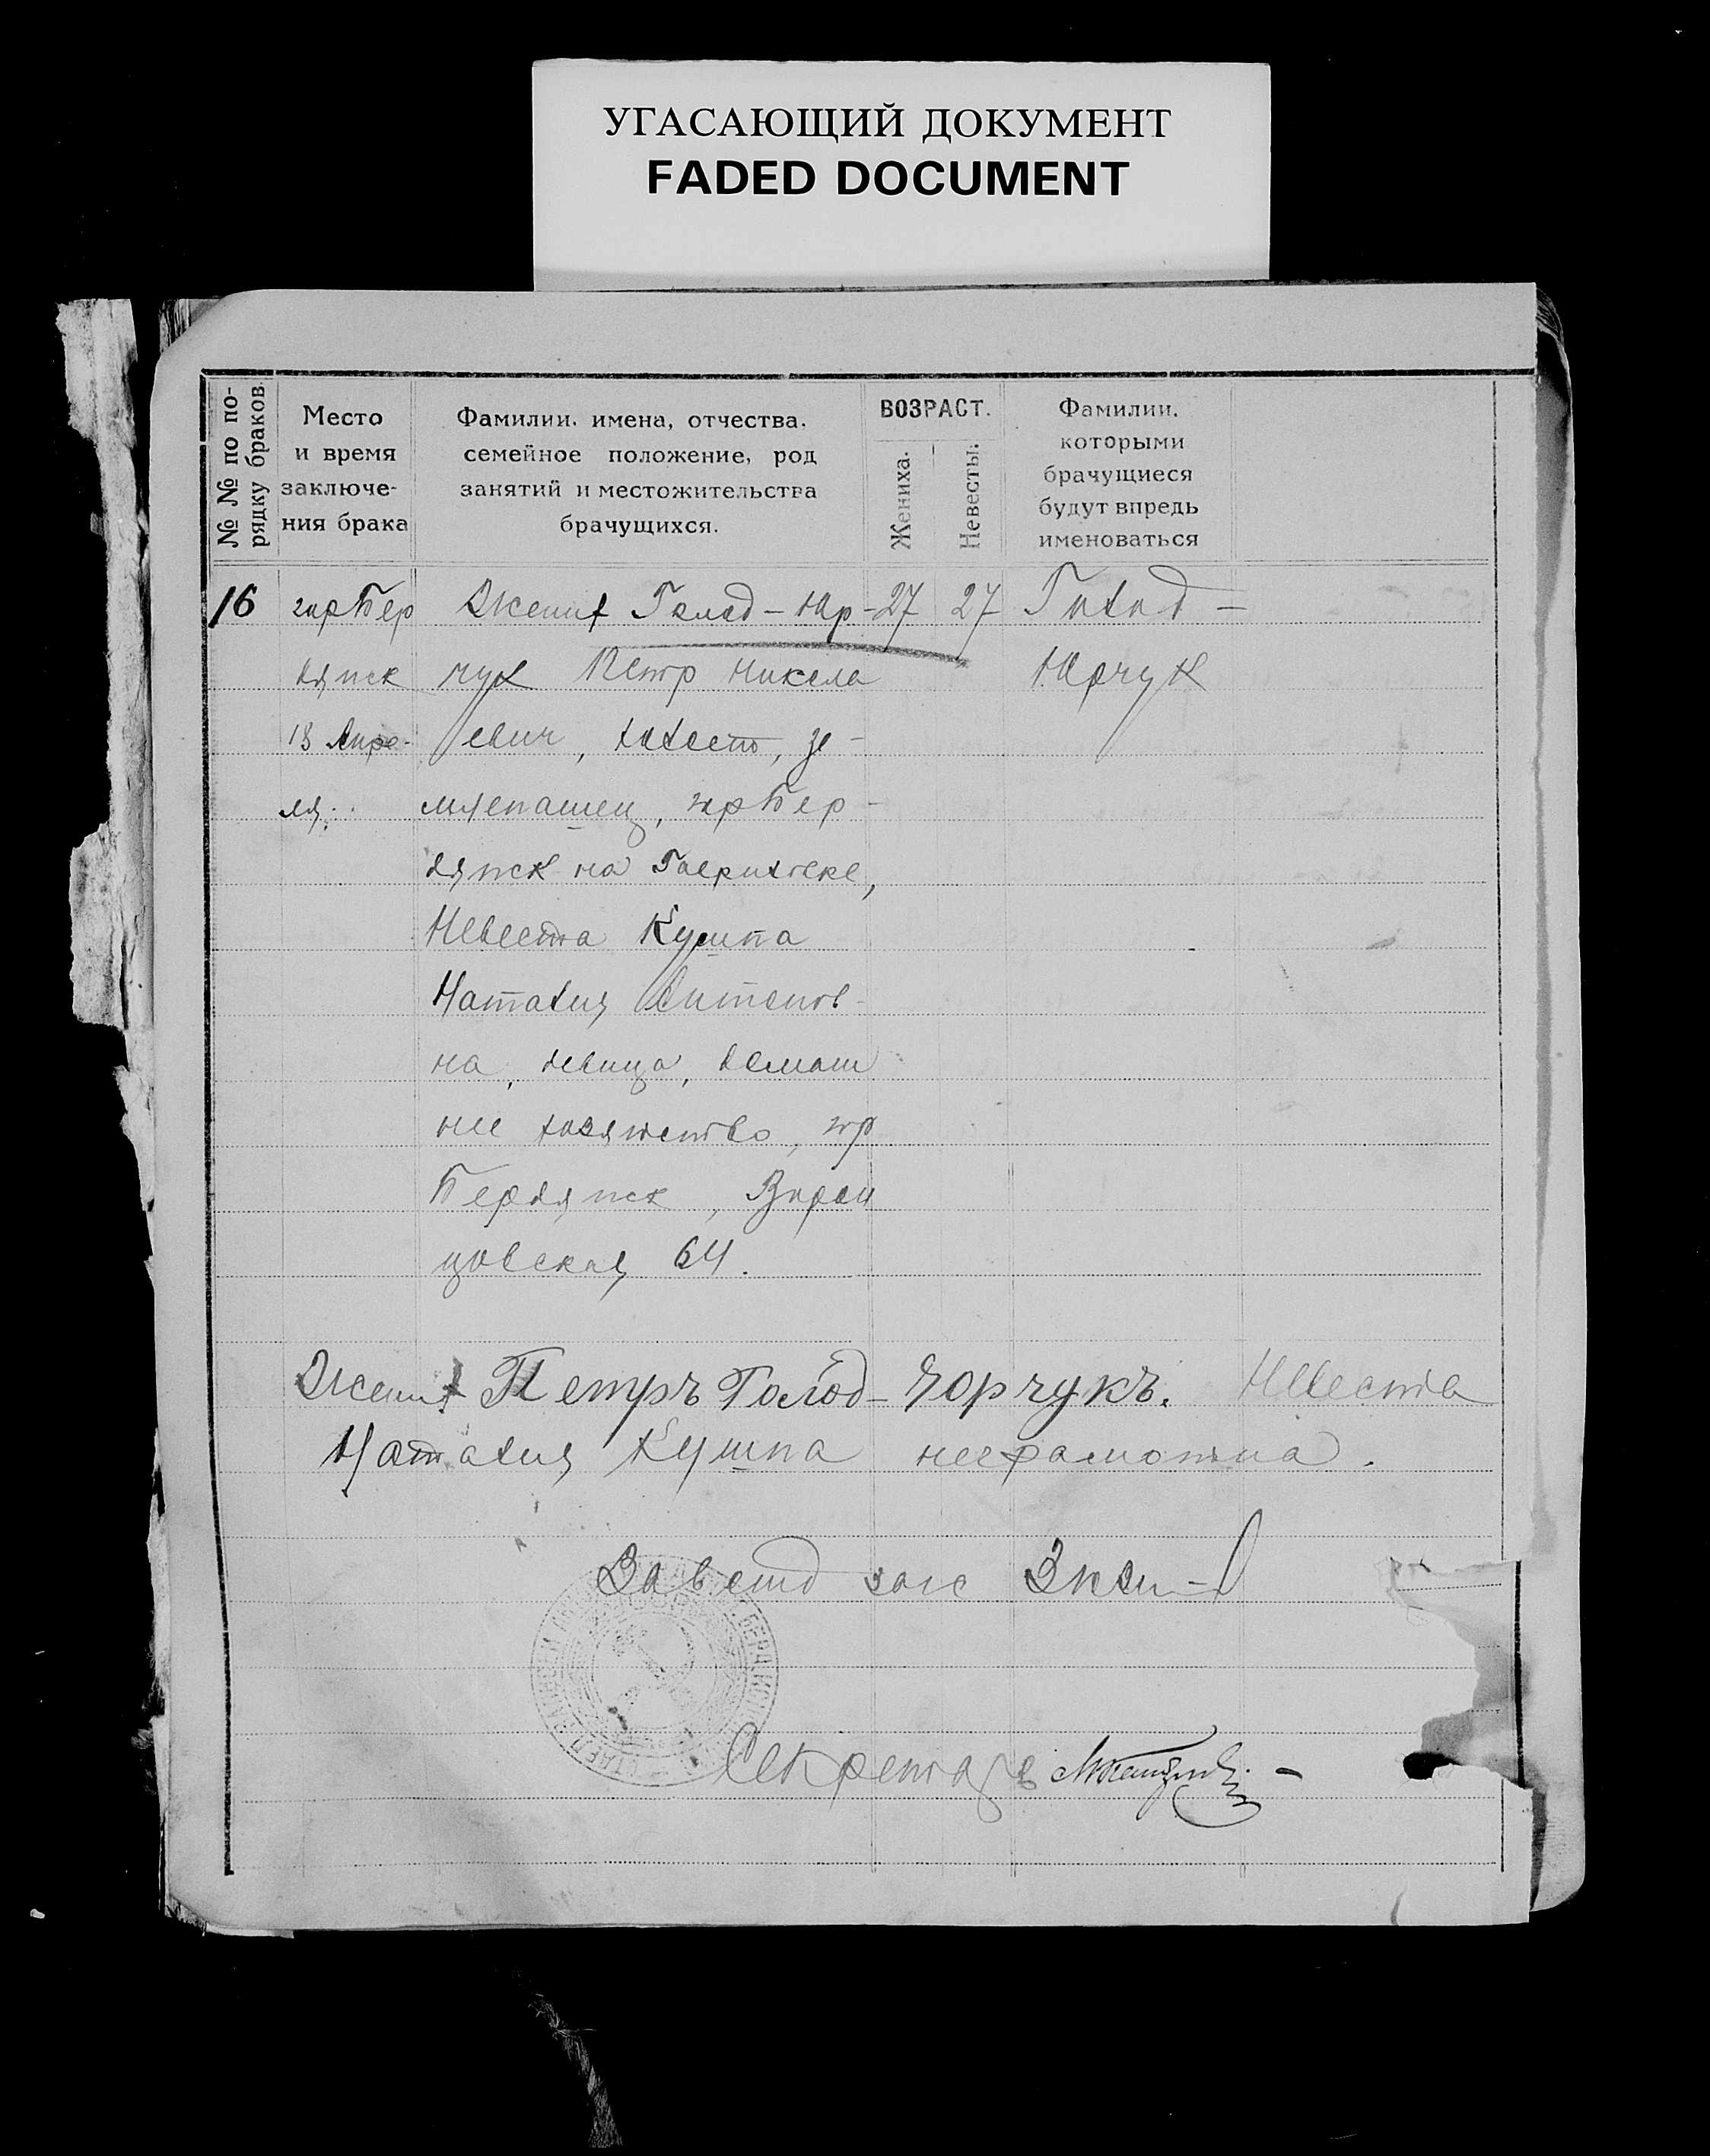 УГАСАЮЩИЙ ДОКУМЕНТ
FADED DOCUMENT
№ № по по-
рядку браков.
Место
и время
заключе-
ния брака
Фамилии, имена, отчества,
семейное положение, род
занятий и местожительства
брачущихся.
ВОЗРАСТ.
Жениха.
Невесты.
Фамилии,
которыми
брачущиеся
будут впредь
именоваться
16
гор Бер
дянск
13 Апре-
ля.
Жених Голод-Юр-
чук Петр Никола
евич, холост, зе-
млепашец, гор Бер-
дянск на
Невеста Кушпа
Наталия Антонов-
на, девица, домаш
нее хозяйство, гор
Бердянск, Ворон
цовская 64.
27
27
Голод-
Юрчук
Жених Петръ Голод-Юрчукъ. Невеста
Наталия Кушпа неграмотна.
Завед загс
Секретарь